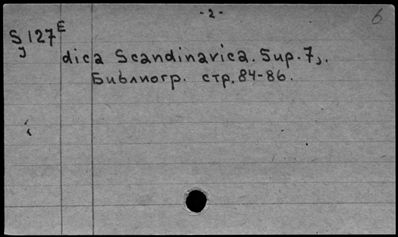 - 2 -
6
S 127 E
J
dica Scandinavica. Sup. 7,.
Библиогр. стр. 84-86.